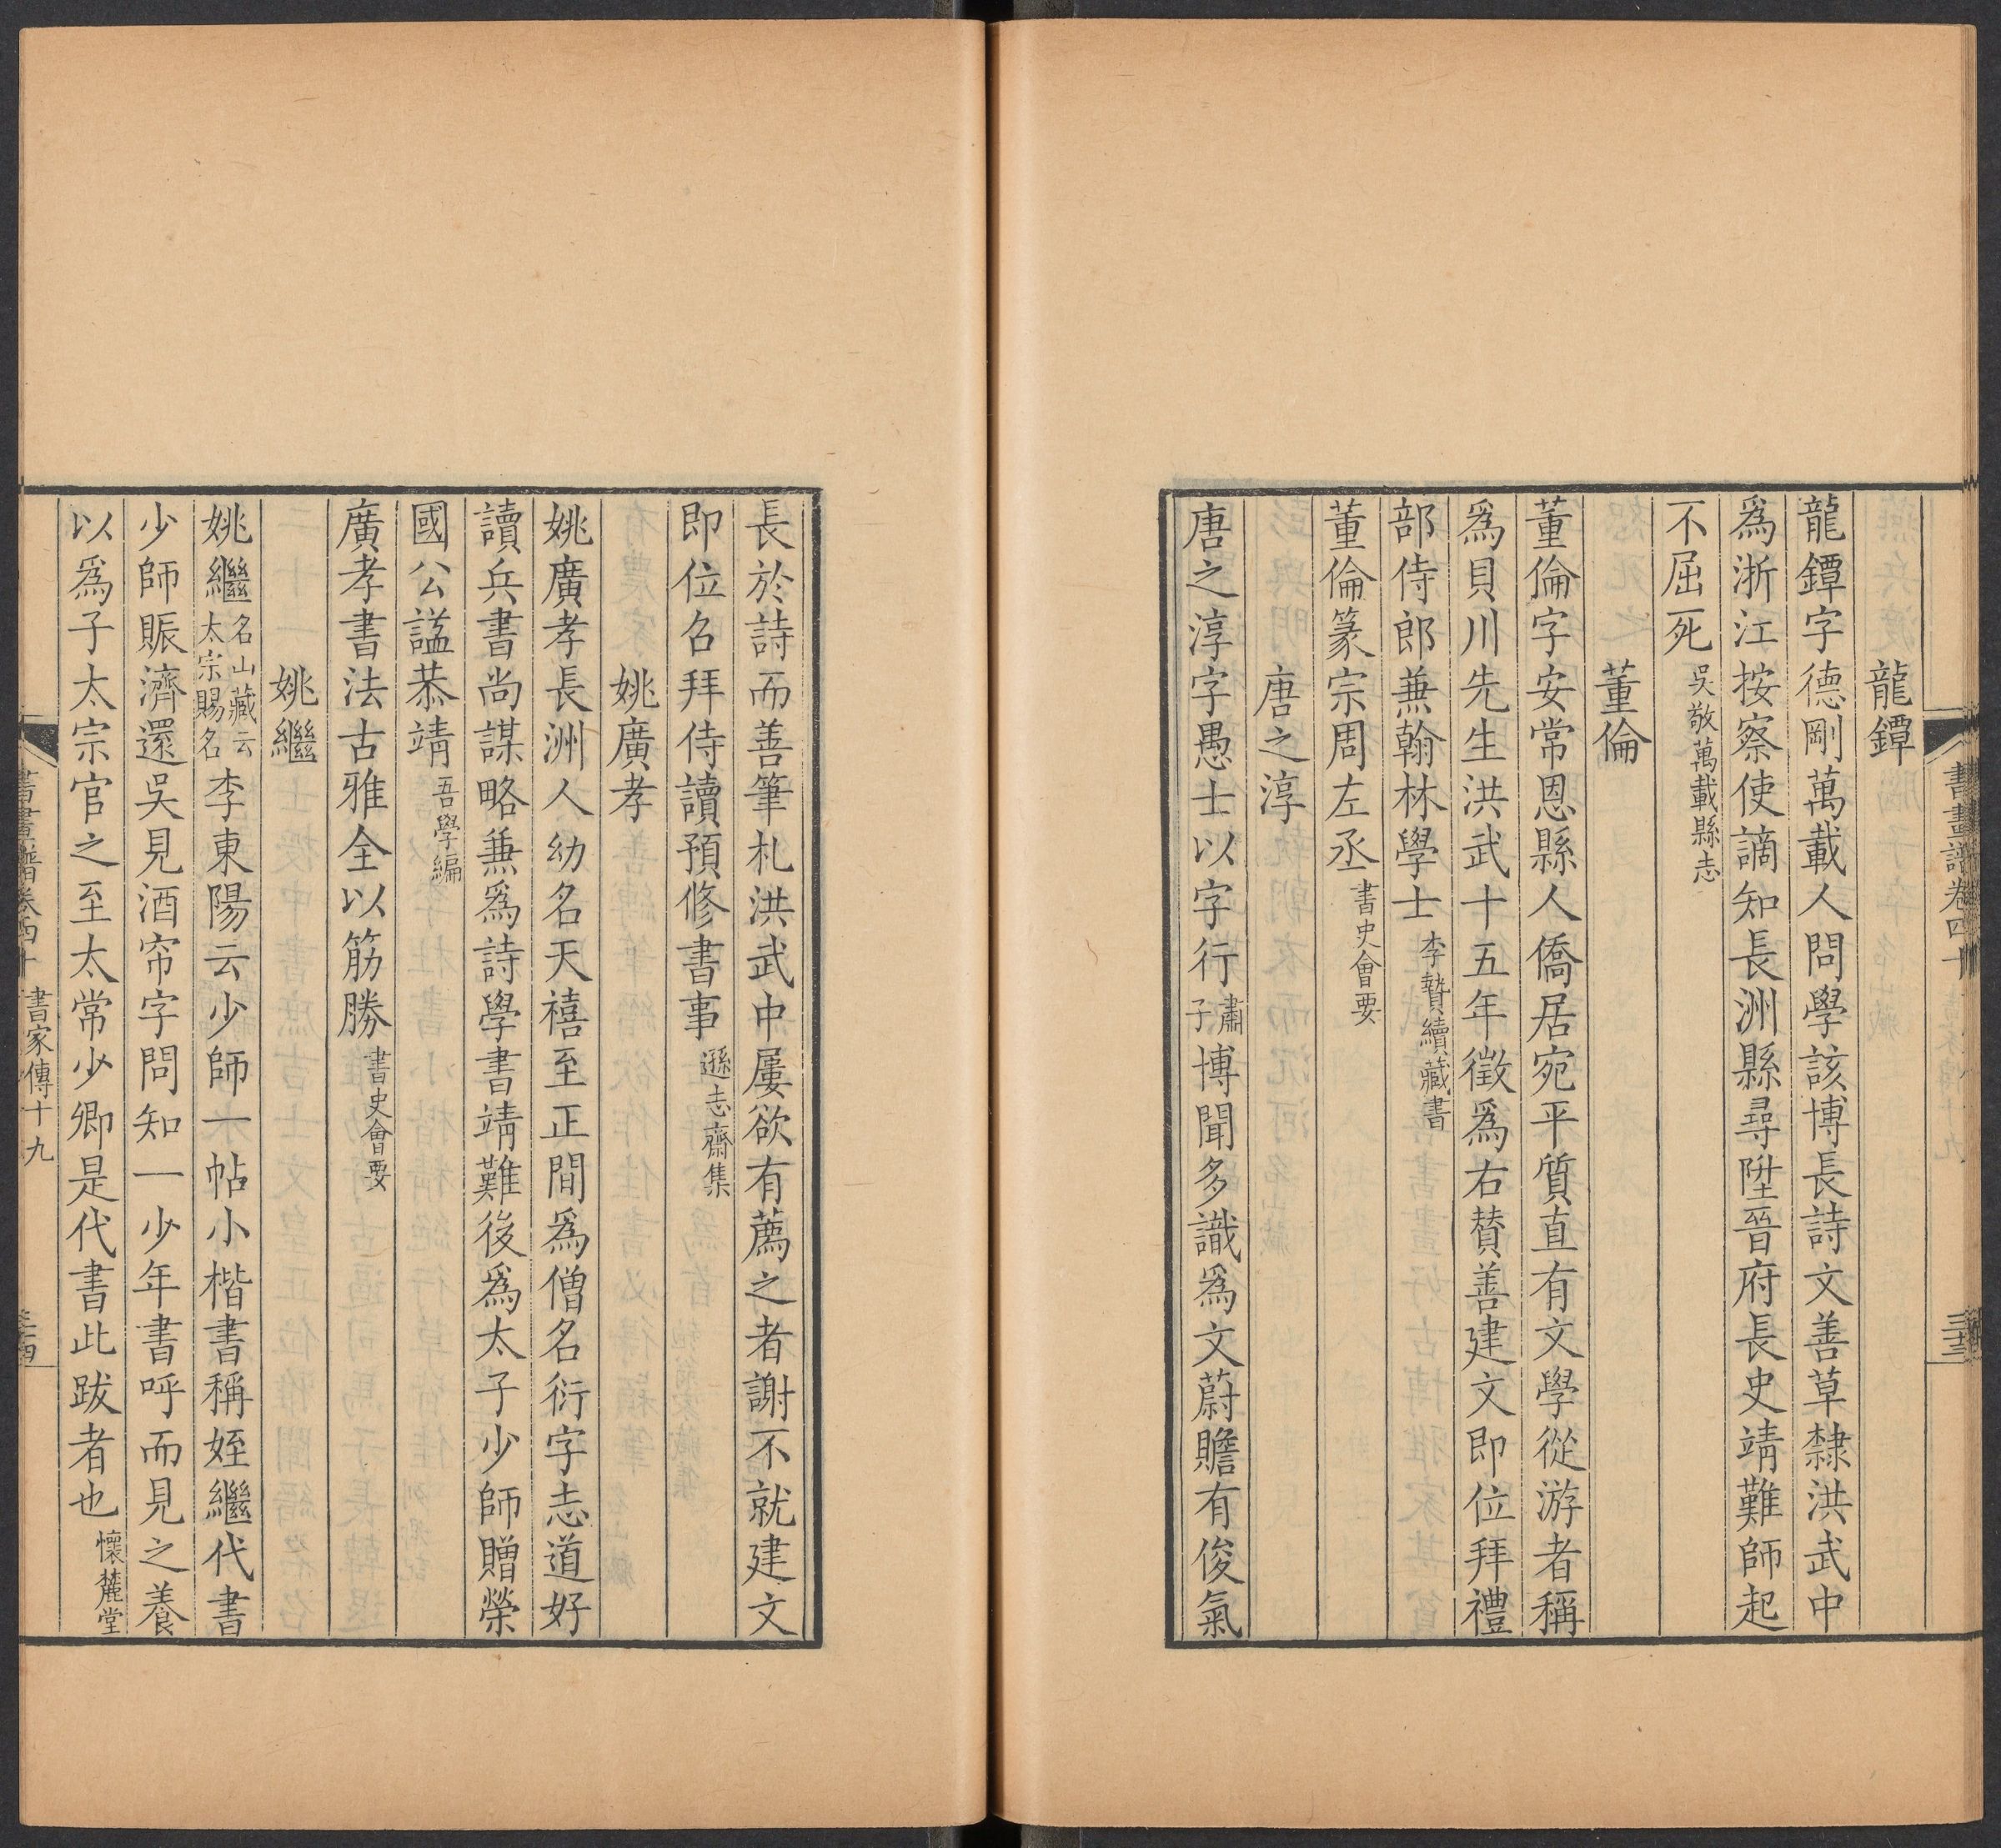 龍鐔
龍鐔字德剛萬載人問學該博長詩文善草隸洪武中
爲浙江按察使謫知長洲縣尋陞晉府長史靖難師起
不屈死吳敬萬載縣志
董倫
董倫字安常恩縣人僑居宛平質直有文學從游者稱
爲貝川先生洪武十五年徵爲右贊善建文即位拜禮
部侍郎兼翰林學士李贄續藏書
董倫篆宗周左丞書史會要
唐之淳
唐之淳字愚士以字行肅子博聞多識爲文蔚贍有俊氣
書畫譜卷四十
三十三
長於詩而善筆札洪武中屢欲有薦之者謝不就建文
即位召拜侍讀預修書事遜志齋集
姚廣孝
姚廣孝長洲人幼名天禧至正間爲僧名衍字志道好
讀兵書尚謀略兼爲詩學書靖難後爲太子少師贈榮
國公諡恭靖吾學編
廣孝書法古雅全以筋勝書史會要
姚繼
姚繼名山藏云太宗賜名李東陽云少師一帖小楷書稱姪繼代書
少師賑濟還吳見酒帘字問知一少年書呼而見之養
以爲子太宗官之至太常少卿是代書此跋者也懷麓堂
書畫譜卷四十 書家傳十九